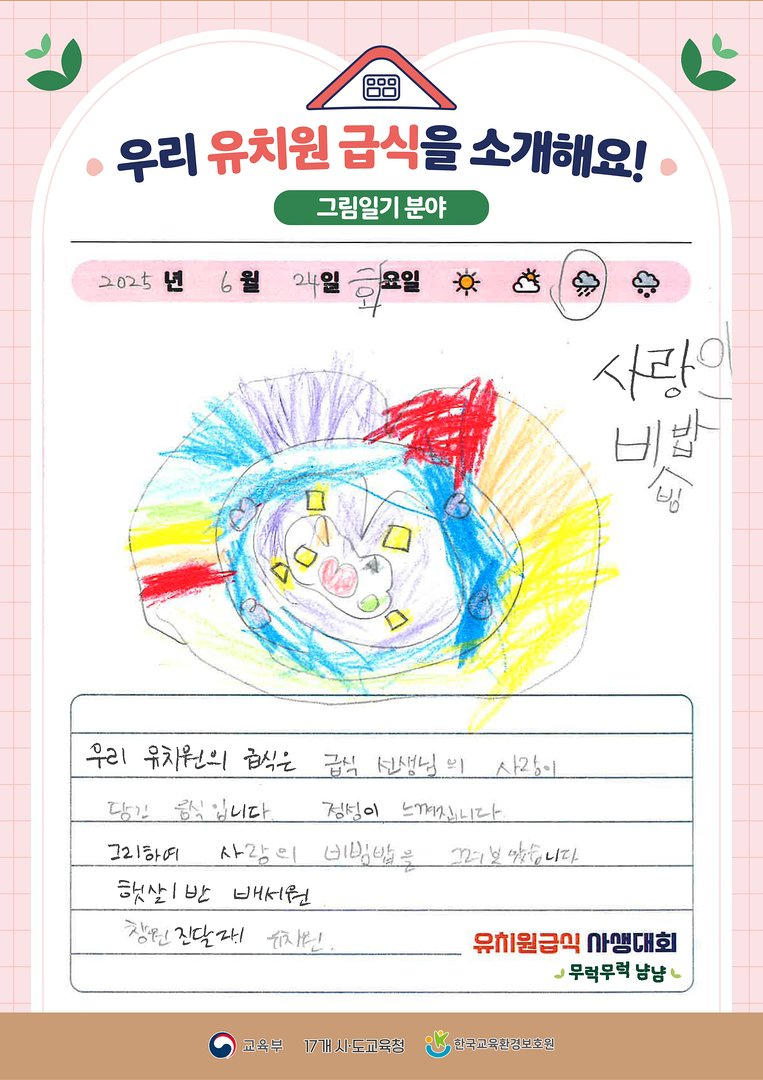 우리 유치원 급식을 소개해요!
그림일기 분야
2025 년 6 월 24일 화요일
사랑의
비빔밥
우리 유치원의 급식은 급식 선생님의 사랑이
담긴 음식입니다. 정성이 느껴집니다.
그리하여 사랑의 비빔밥을 그려보았습니다
햇살1반 배서원
창원 진달래 유치원.
유치원급식 사생대회
무럭무럭 냠냠
교육부 17개 시·도교육청 한국교육환경보호원